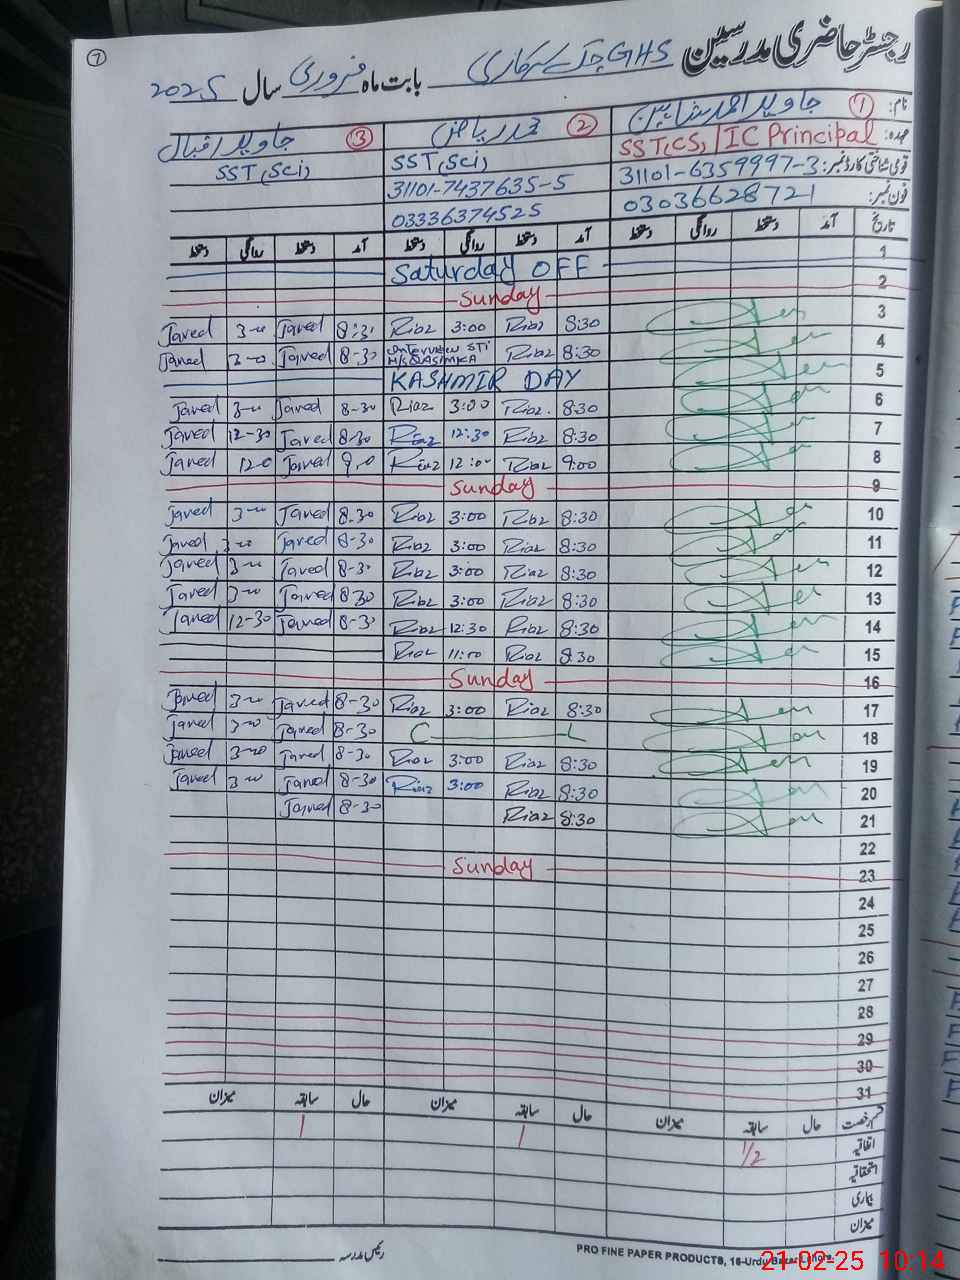 7
رجسٹر حاضری مدرسین GHS چک سرکاری بابت ماہ فروری سال 2025
نام: ① جاوید احمد شاہین ② محمد ریاض ③ جاوید اقبال
عہدہ: SST(CS)/IC Principal SST(Sci) SST(Sci)
قومی شناختی کارڈ نمبر: 31101-6359997-3 31101-7437635-5
فون نمبر: 03036628721 03336374525
تاریخ آمد دستخط روانگی دستخط آمد دستخط روانگی دستخط آمد دستخط روانگی دستخط
1 Saturday OFF
2 Sunday
3 8:30 Riaz 3:00 Riaz 8:30 Javed 3-00 Javed
4 8:30 Riaz Interview STI 8-30 Javed 3-00 Javed
5 KASHMIR DAY
6 8:30 Riaz 3:00 Riaz 8-30 Javed 3-00 Javed
7 8:30 Riaz 12:30 Riaz 8-30 Javed 12-30 Javed
8 9:00 Riaz 12:00 Riaz 9.0 Javed 12.0 Javed
9 Sunday
10 8:30 Riaz 3:00 Riaz 8.30 Javed 3-00 Javed
11 8:30 Riaz 3:00 Riaz 8-30 Javed 3-00 Javed
12 8:30 Riaz 3:00 Riaz 8-30 Javed 3-00 Javed
13 8:30 Riaz 3:00 Riaz 8.30 Javed 3-00 Javed
14 8:30 Riaz 12:30 Riaz 8-30 Javed 12-30 Javed
15 8:30 Riaz 11:00 Riaz
16 Sunday
17 8:30 Riaz 3:00 Riaz 8-30 Javed 3-00 Javed
18 C L 8-30 Javed 3-00 Javed
19 8:30 Riaz 3:00 Riaz 8-30 Javed 3-00 Javed
20 8:30 Riaz 3:00 Riaz 8-30 Javed 3-00 Javed
21 8:30 Riaz 8-30 Javed
22
23 Sunday
24
25
26
27
28
29
30
31
قسم رخصت حال سابقہ میزان حال سابقہ میزان حال سابقہ میزان
اتفاقیہ 1/2 1 1
استحقاقیہ
بیماری
میزان
رئیس مدرسہ
PRO FINE PAPER PRODUCTS, 16-Urdu Bazar Lahore.
21-02-25 10:14